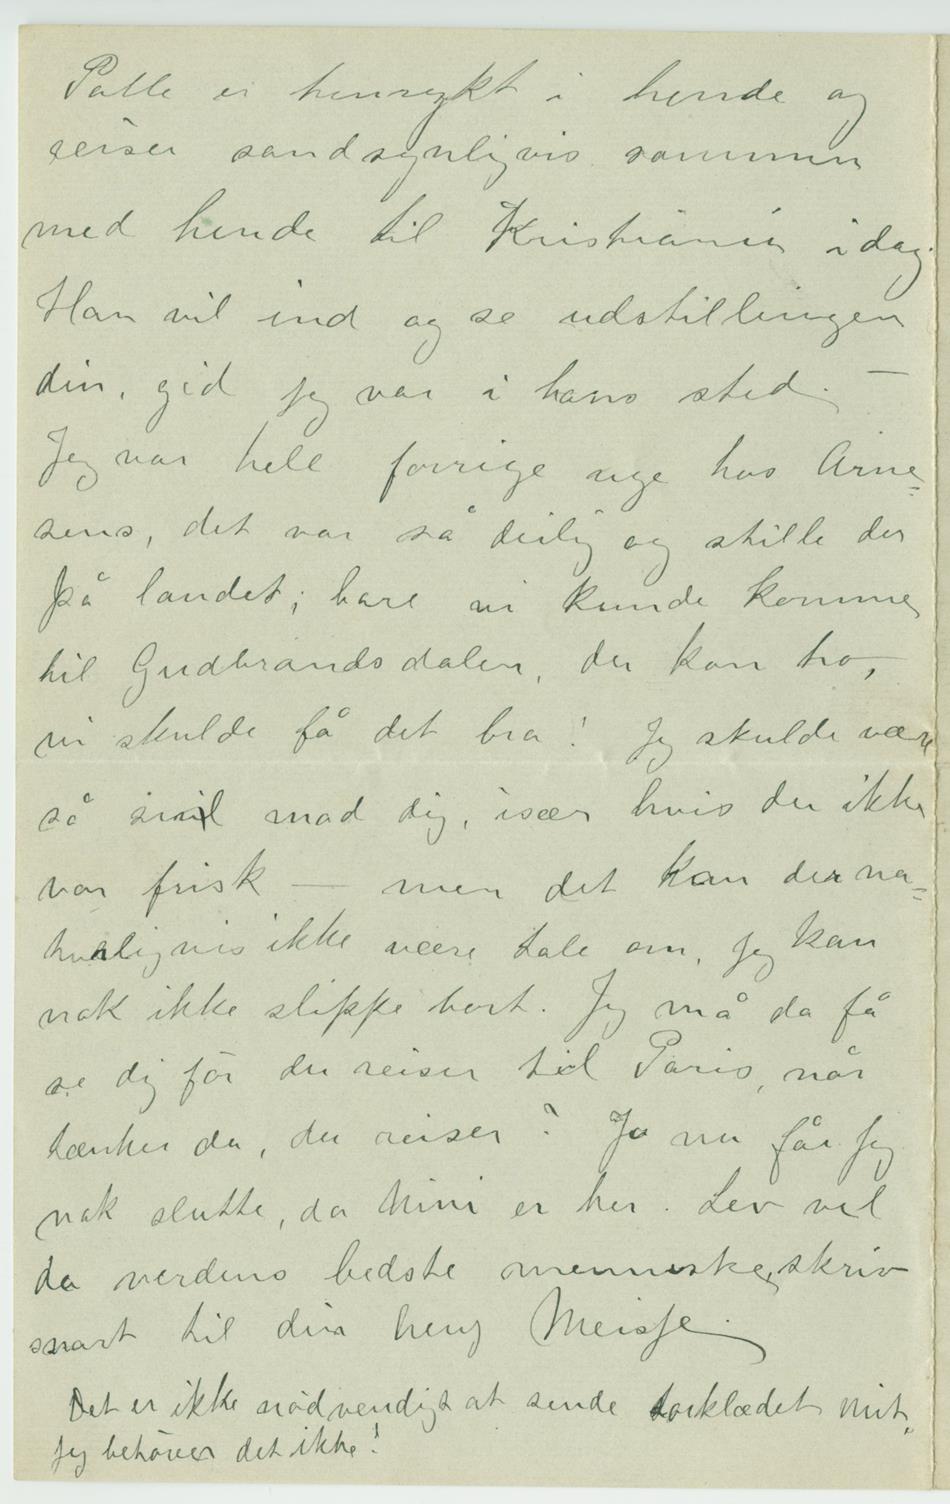 Palle er henrykt i hende og
reiser sandsynligvis sammen
med hende til Kristiania idag.
Han vil ind og se udstillingen
din, gid jeg var i hans sted. —
Jeg var hele forrige uge hos Arne=
sens, det var så deilig og stille der
på landet; bare vi kunde komme
til Gudbrandsdalen, du kan tro,
vi skulde få det bra! Jeg skulde være
så snil mod dig, især hvis du ikke
var frisk — men det kan der na=
turligvis ikke være tale om, jeg kan
nok ikke slippe bort. Jeg må da få
se dig før du reiser til Paris, når
tænker du, du reiser? Ja nu får jeg
nok slutte, da Mini er her. Lev vel
du verdens bedste menneske, skriv
snart til din heng Meisse.
Det er ikke nødvendigt at sende torklædet mit,
jeg behøver det ikke!